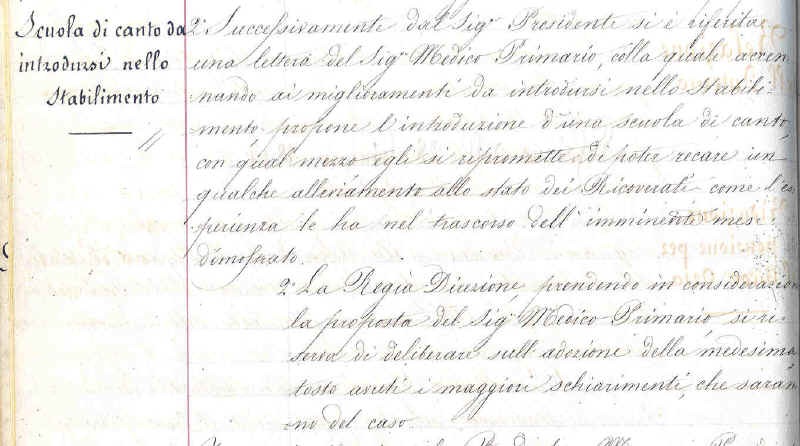 Scuola di canto da
introdursi nello
Stabilimento
2° Successivamente dal Sigr Presidente si è riferita
una lettera del Sigr Medico Primario, colla quale accen-
nando ai miglioramenti da introdursi nello Stabili-
mento propone l'introduzione d'una scuola di canto,
con qual mezzo egli si ripromette di poter recare un
qualche alleviamento allo stato dei Ricoverati come l'es
perienza le ha nel trascorso dell'imminente mese
dimostrato.
2° La Regia Direzione, prendendo in considerazion
la proposta del Sigr Medico Primario, si ri-
serva di deliberare sull'adozione della medesima
tosto avuti i maggiori schiarimenti, che saran
no del caso.